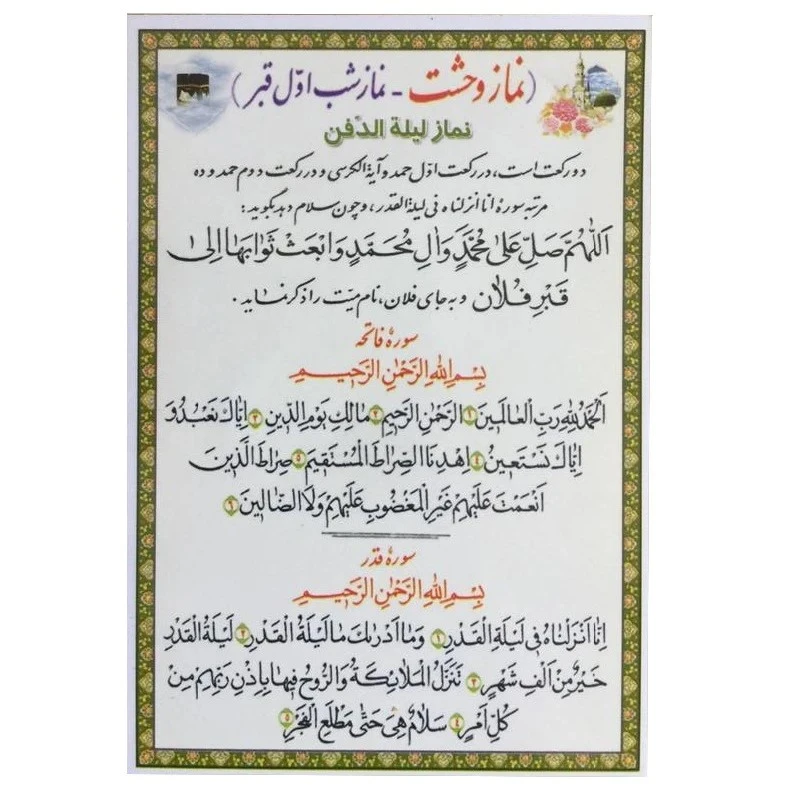 (نماز وحشت - نماز شب اوّل قبر)
نماز لیلة الدّفن
دو رکعت است، در رکعت اوّل حمد و آیة الکرسی و در رکعت دوم حمد و ده
مرتبه سورهٔ انا انزلناه فی لیلة القدر، و چون سلام دهد بگوید:
اَللّٰهُمَّ صَلِّ عَلىٰ مُحَمَّدٍ وَالِ مُحَمَّدٍ وَابْعَثْ ثَوٰابَهٰا اِلىٰ
قَبْرِ فُلاٰن و به جای فلان، نام میّت را ذکر نماید.
سورهٔ فاتحه
بِسْمِ اللّٰهِ الرَّحْمٰنِ الرَّحِيمِ
اَلْحَمْدُ لِلّٰهِ رَبِّ الْعٰالَمِينَ ۱ اَلرَّحْمٰنِ الرَّحِيمِ ۲ مٰالِكِ يَوْمِ الدِّينِ ۳ اِيّٰاكَ نَعْبُدُ وَ
اِيّٰاكَ نَسْتَعِينُ ۴ اِهْدِنَا الصِّرٰاطَ الْمُسْتَقِيمَ ۵ صِرٰاطَ الَّذِينَ
اَنْعَمْتَ عَلَيْهِمْ غَيْرِ الْمَغْضُوبِ عَلَيْهِمْ وَلَا الضّٰالِّينَ ۶
سورهٔ قدر
بِسْمِ اللّٰهِ الرَّحْمٰنِ الرَّحِيمِ
اِنّٰا اَنْزَلْنٰاهُ فِي لَيْلَةِ الْقَدْرِ ۱ وَمٰا اَدْرٰىكَ مٰا لَيْلَةُ الْقَدْرِ ۲ لَيْلَةُ الْقَدْرِ
خَيْرٌ مِنْ اَلْفِ شَهْرٍ ۳ تَنَزَّلُ الْمَلاٰئِكَةُ وَالرُّوحُ فِيهٰا بِاِذْنِ رَبِّهِمْ مِنْ
كُلِّ اَمْرٍ ۴ سَلاٰمٌ هِيَ حَتّٰى مَطْلَعِ الْفَجْرِ ۵